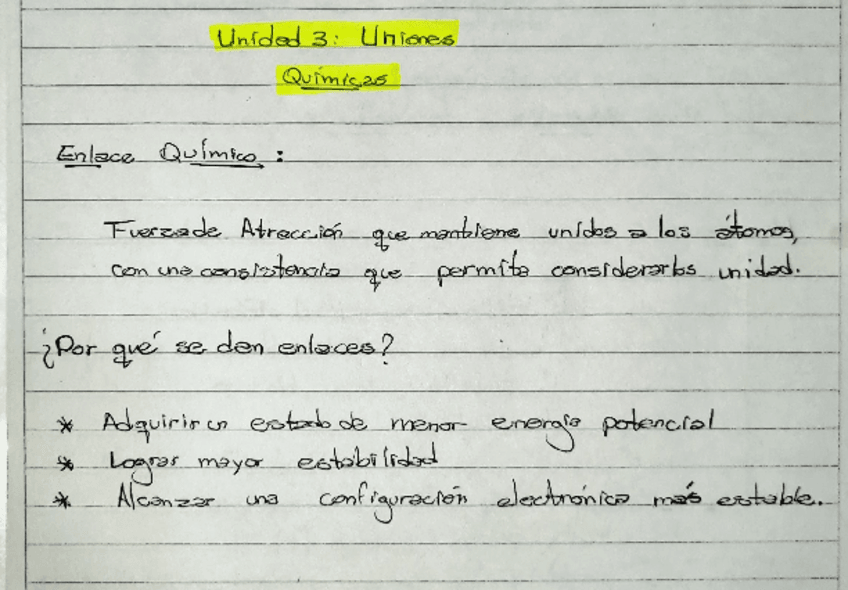 Unidad 3: Uniones
Químicas
Enlace Químico :
Fuerza de Atracción que mantiene unidos a los átomos,
con una consistencia que permita considerarlos unidad.
¿Por qué se dan enlaces?
* Adquirir un estado de menor energía potencial
* Lograr mayor estabilidad
* Alcanzar una configuración electrónica más estable.